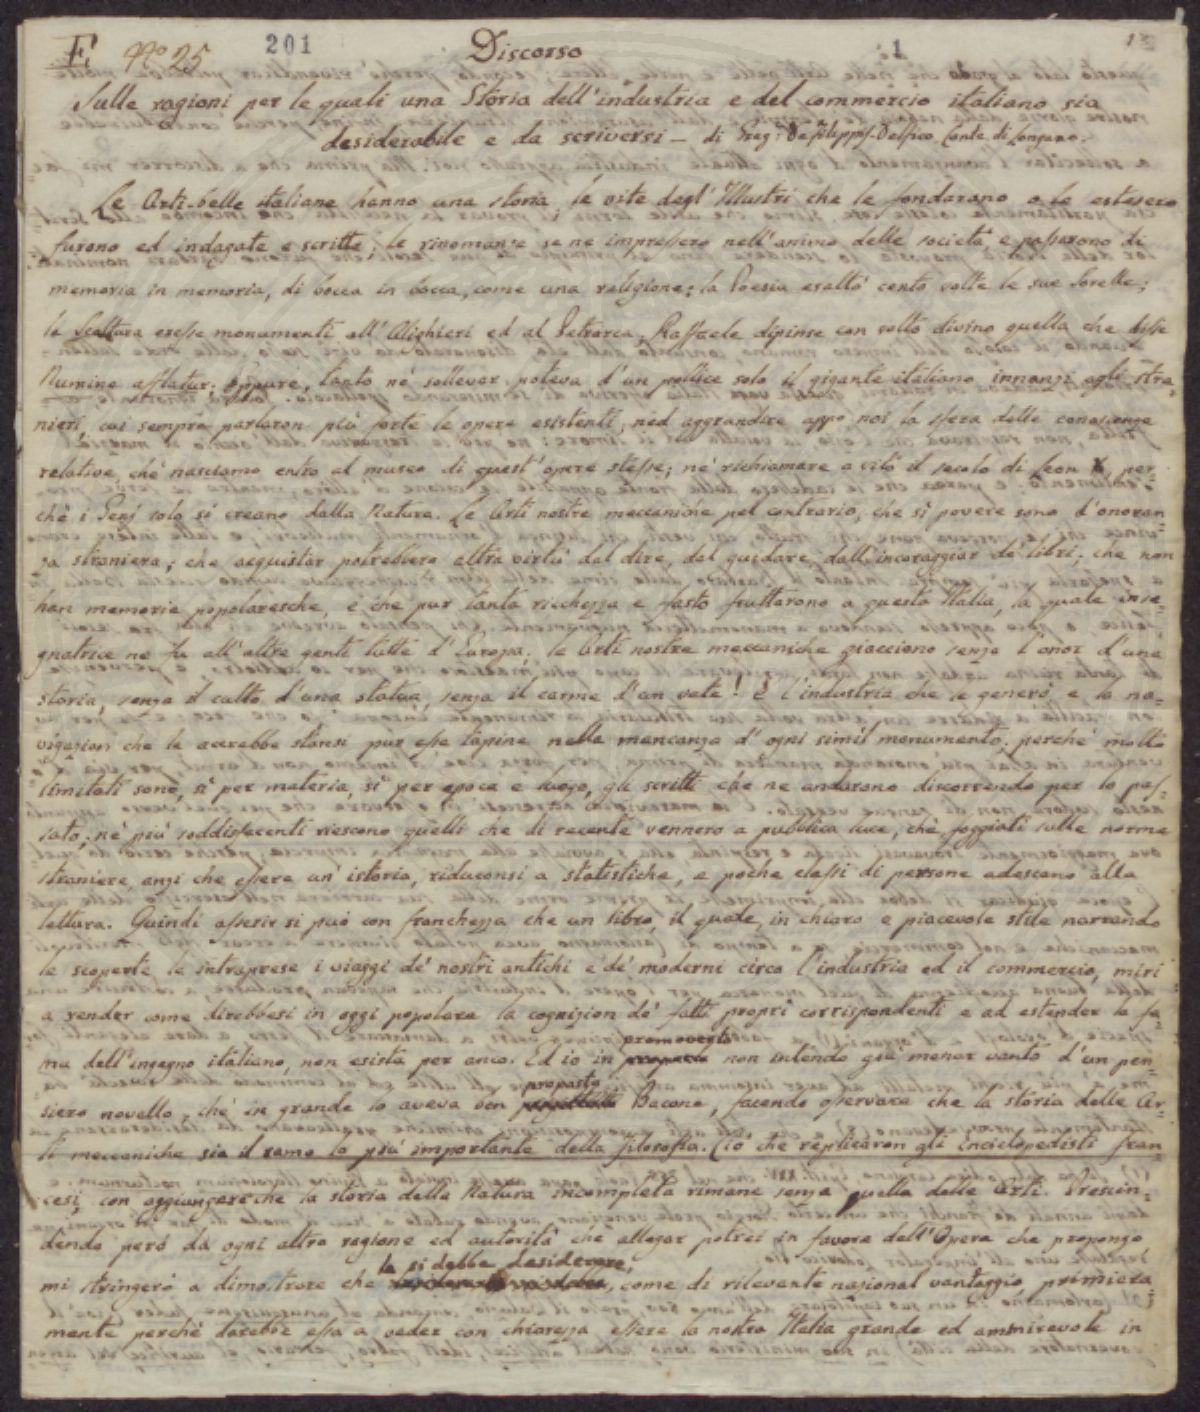 E. Nº 25 201 Discorso 1
Sulle ragioni per le quali una Storia dell'industria e del commercio italiano sia
desiderabile e da scriversi – di Greg: De Filippis-Delfico Conte di Longano.
Le Arti-belle italiane hanno una storia, le vite degl'Illustri che le fondarono o le estesero
furono ed indagate e scritte; le rinomanze se ne impressero nell'animo delle società, e passarono di
memoria in memoria, di bocca in bocca, come una religione; la Poesia esaltò cento volte le sue Sorelle;
la Scultura eresse monumenti all'Alighieri ed al Petrarca, Raffaele dipinse con volto divino quella che disse
Numine afflatur. Eppure, tanto nè sollevar poteva d'un pollice solo il gigante italiano innanzi agli stra-
nieri, cui sempre parlaron più forte le opere esistenti; nèd aggrandire appo noi la sfera delle conoscenze
relative, chè nasciamo entro al museo di quest'opere stesse; nè richiamare a vita il secolo di Leon X, per-
chè i Genj solo si creano dalla Natura. Le Arti nostre meccaniche pel contrario, che sì povere sono d'onoran-
za straniera; che acquistar potrebbero altra virtù dal dire, dal guidare, dall'incoraggiar de' libri; che non
han memorie popolaresche, e che pur tanta ricchezza e fasto fruttarono a questa Italia, la quale inse-
gnatrice ne fu all'altre genti tutte d'Europa; le Arti nostre meccaniche giacciono senza l'onor d'una
storia, senza il culto d'una statua, senza il carme d'un vate. E l'industria che le generò, e la na-
vigazion che le accrebbe stansi pur esse tapine nella mancanza d'ogni simil monumento: perchè molto
limitati sono, sì per materia, sì per epoca e luogo, gli scritti che ne andarono discorrendo per lo pas-
sato; nè più soddisfacenti riescono quelli che di recente vennero a pubblica luce, chè foggiati sulle norme
straniere, anzi che essere un'istoria, riduconsi a statistiche, e poche classi di persone adescano alla
lettura. Quindi asserir si può con franchezza che un libro, il quale, in chiaro e piacevole stile narrando
le scoperte, le intraprese i viaggi de' nostri antichi e de' moderni circa l'industria ed il commercio, miri
a render come direbbesi in oggi popolare la cognizion de' fatti proprî corrispondenti e ad estender la fa-
ma dell'ingegno italiano, non esista per anco. Ed io in promoverlo non intendo già menar vanto d'un pen-
siero novello, chè in grande lo aveva ben proposto Bacone, facendo osservare che la storia delle Ar-
ti meccaniche sia il ramo lo più importante della filosofia. Ciò che replicaron gli Enciclopedisti fran-
cesi, con aggiungere che la storia della Natura incompleta rimane senza quella delle Arti. Prescin-
dendo però da ogni altra ragione ed autorità che allegar potrei in favore dell'Opera che propongo
mi stringerò a dimostrare che la si debbe desiderare, come di rilevante nazional vantaggio, primiera-
mente perchè darebbe essa a veder con chiarezza essere la nostra Italia grande ed ammirevole in